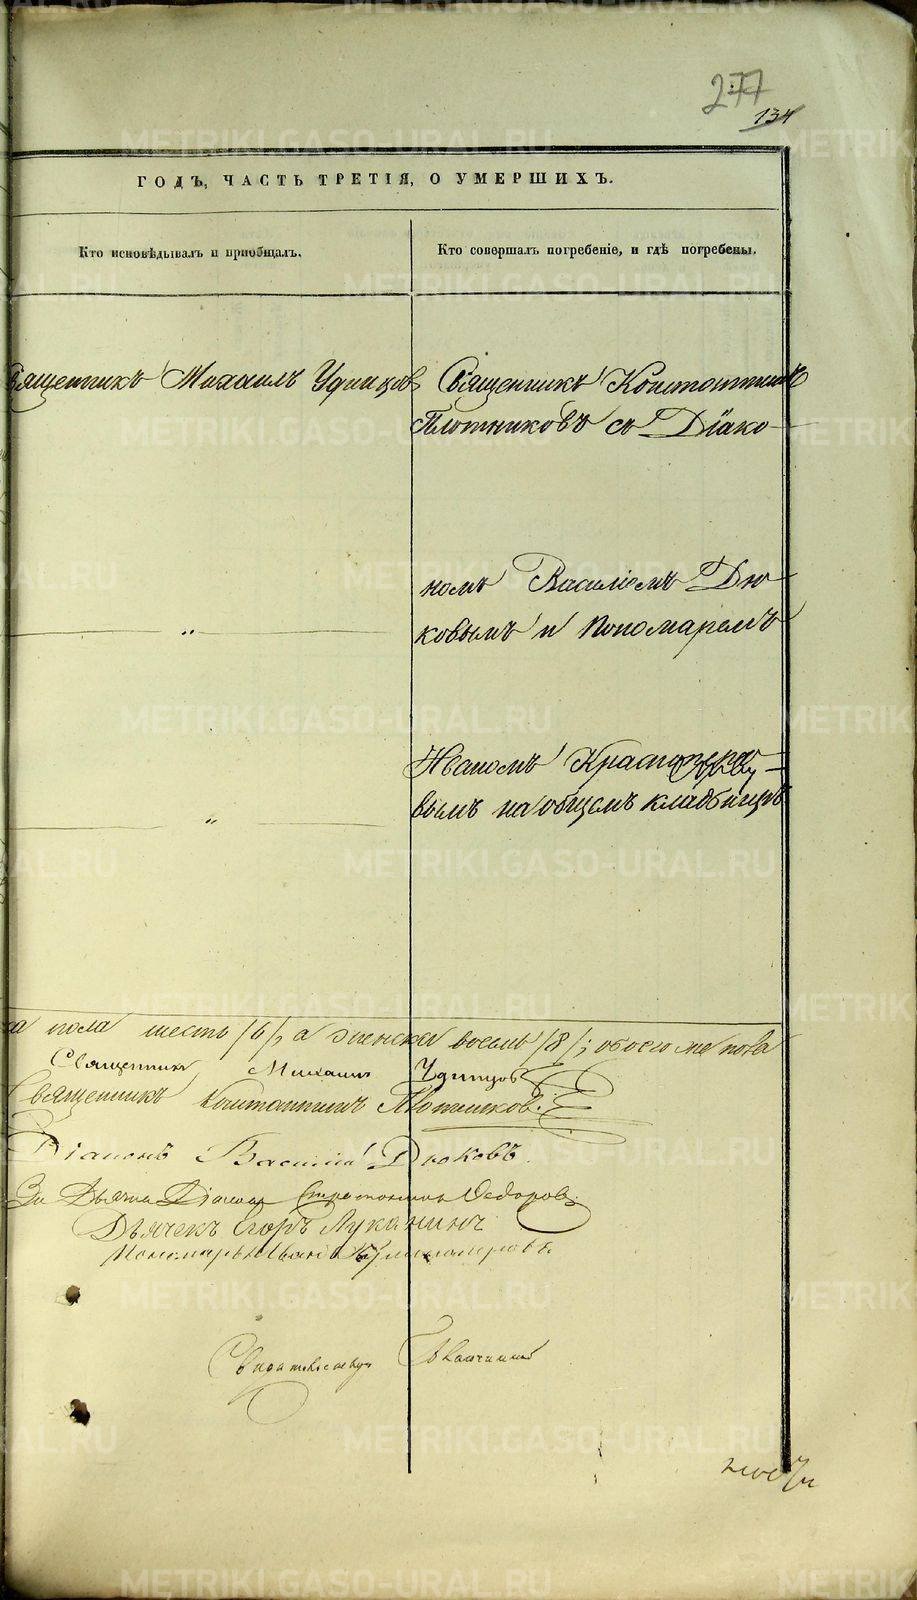 277
134
ГОДЪ, ЧАСТЬ ТРЕТІЯ, О УМЕРШИХЪ.
Кто исповѣдывалъ и пріобщалъ.
Кто совершалъ погребеніе, и гдѣ погребены.
Священникъ Михаилъ Удинцовъ
Священникъ Константинъ
Плотниковъ съ Діако-
номъ Василіемъ Дю-
ковымъ и Пономаремъ
"
Иваномъ Красноперо-
вымъ на общемъ кладбищѣ
"
ка пола шесть /6/, а женска восемь /8/; обоего же пола
Священникъ Михаилъ Удинцовъ
Священникъ Константинъ Плотниковъ.
Діаконъ Василій Дюковъ.
За Дьячка Діаконъ Федоровъ
Дьячекъ Егоръ Луканинъ
Пономарь Иванъ
METRIKI.GASO-URAL.RU